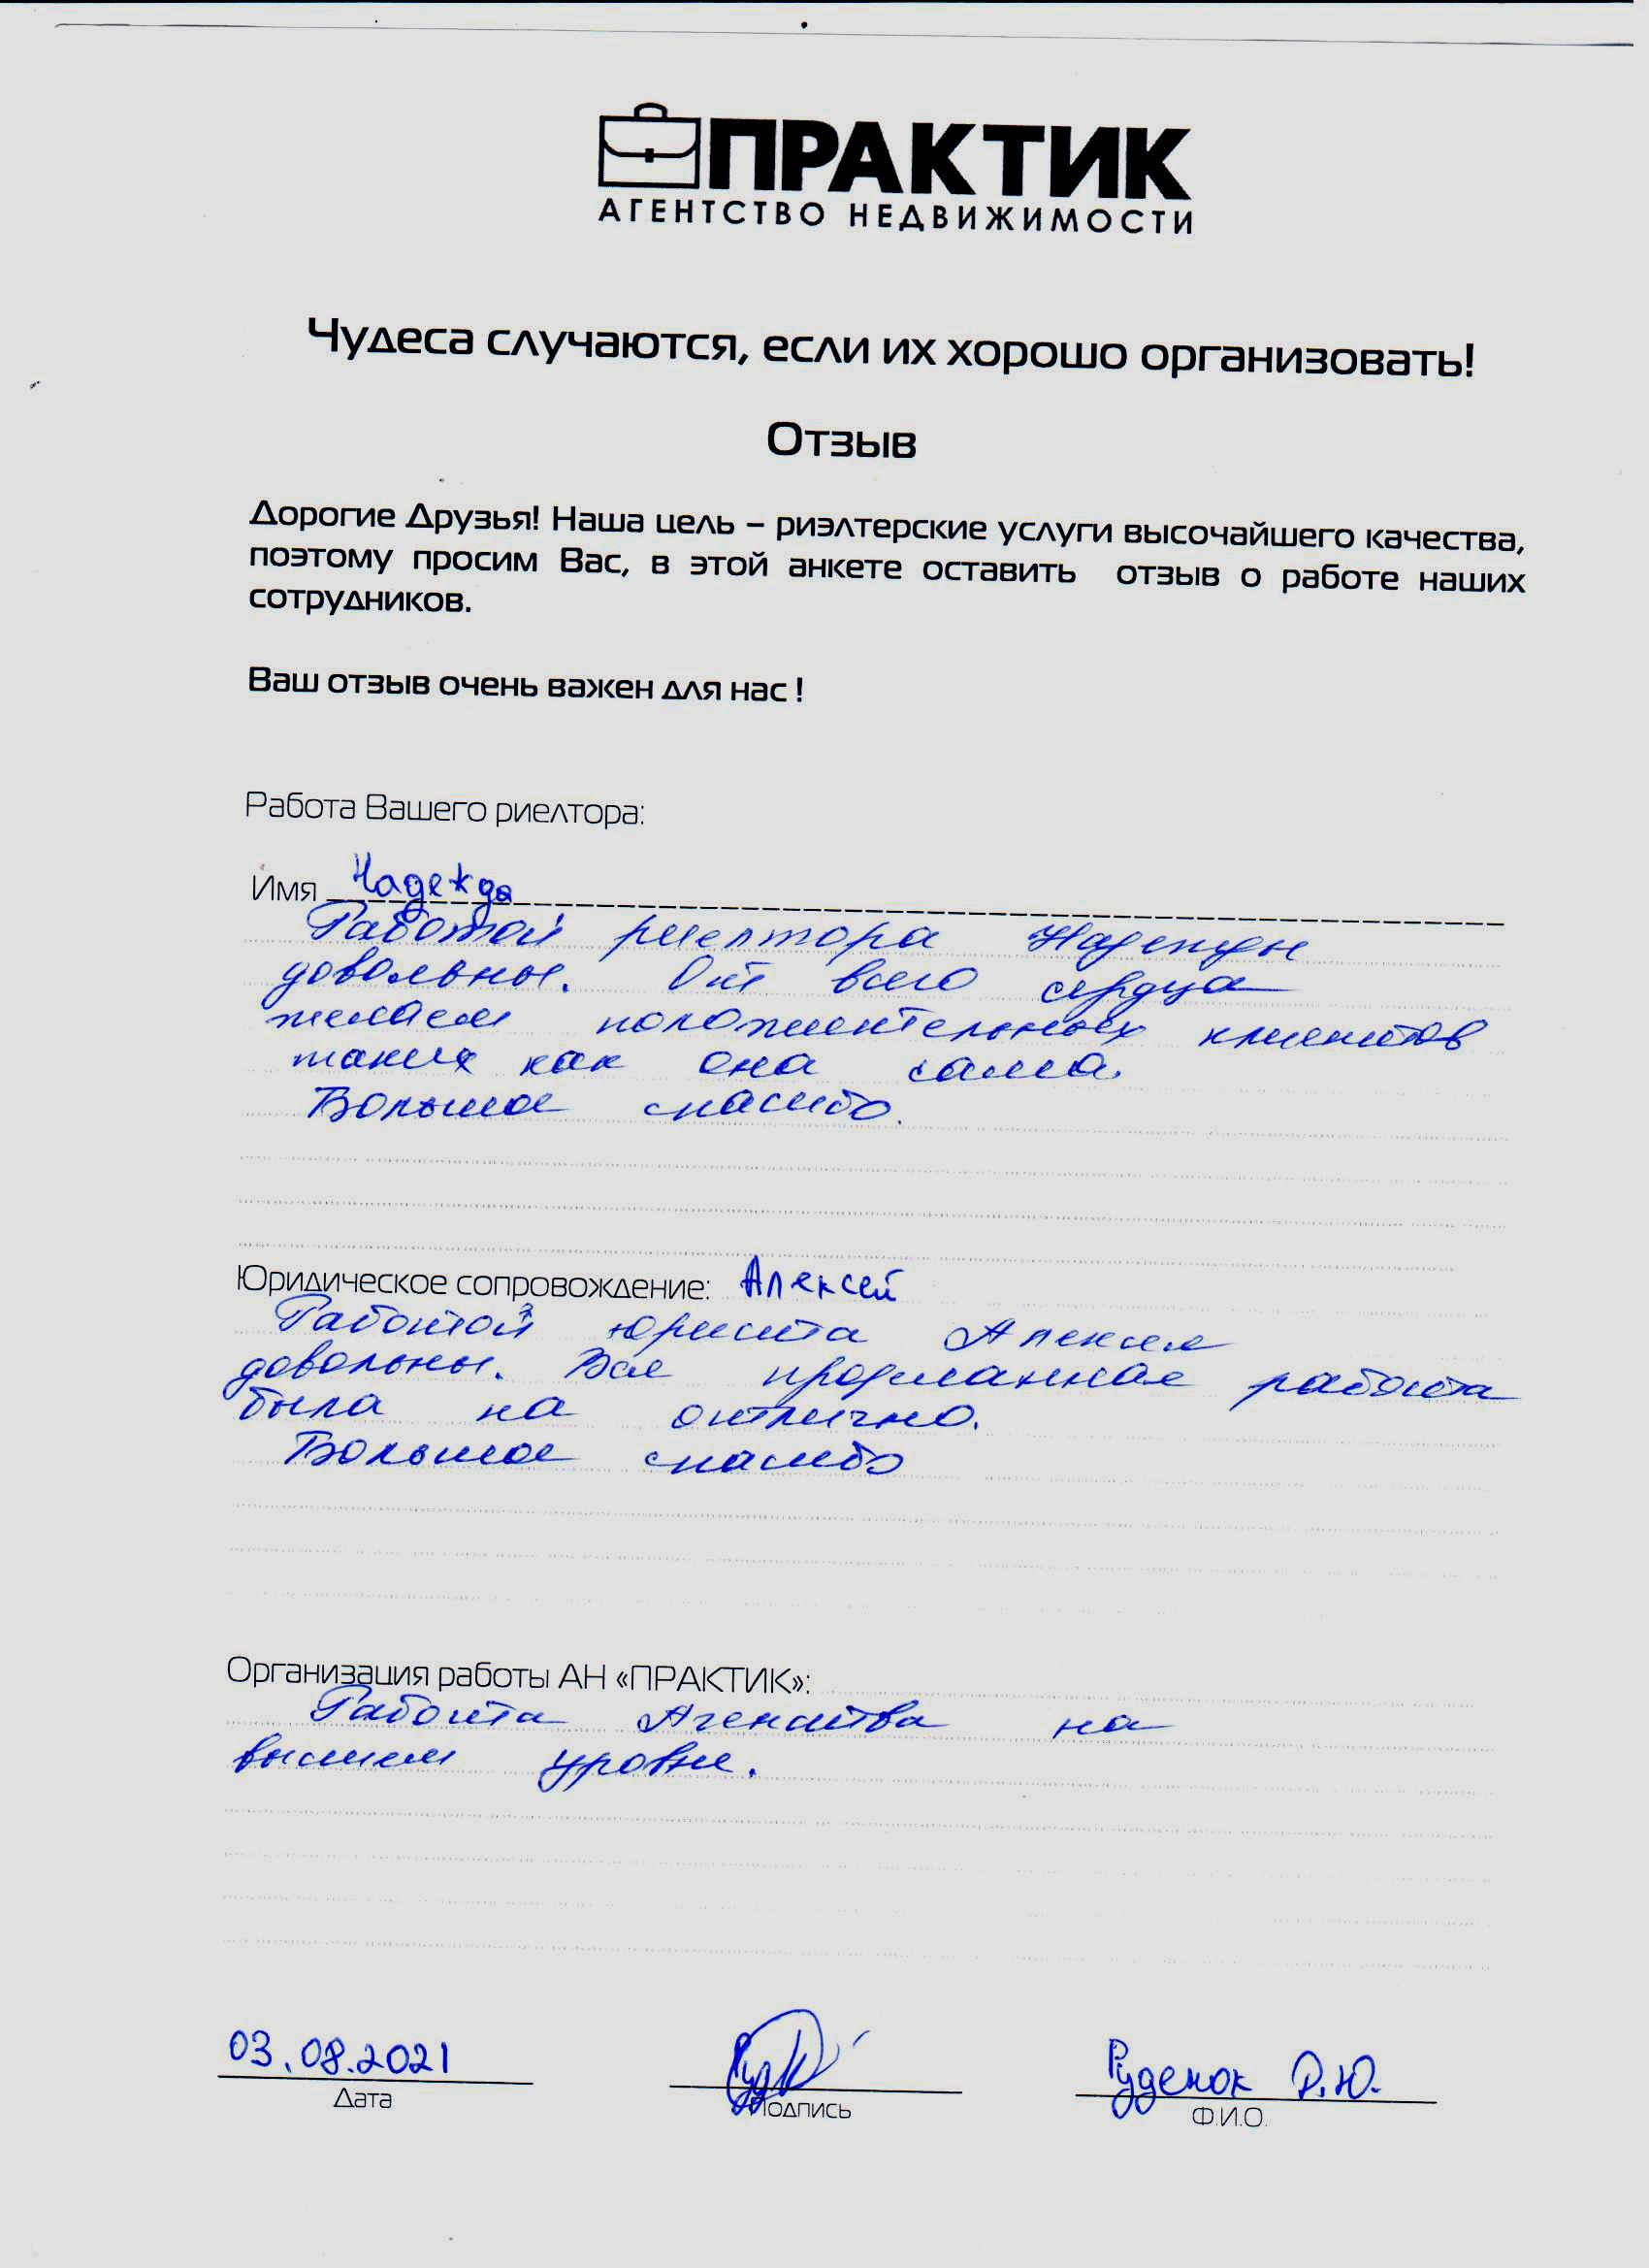 ПРАКТИК
АГЕНТСТВО НЕДВИЖИМОСТИ
Чудеса случаются, если их хорошо организовать!
Отзыв
Дорогие Друзья! Наша цель – риэлтерские услуги высочайшего качества,
поэтому просим Вас, в этой анкете оставить отзыв о работе наших
сотрудников.
Ваш отзыв очень важен для нас !
Работа Вашего риелтора:
Имя Надежда
Работой риелтора Надежды
довольны. От всего сердца
желаем положительных клиентов
таких как она сама.
Большое спасибо.
Юридическое сопровождение: Алексей
Работой юриста Алексея
довольны. Вся проделанная работа
была на отлично.
Большое спасибо
Организация работы АН «ПРАКТИК»:
Работа Агенства на
высшем уровне.
03.08.2021 Руденок Р.Ю.
Дата Подпись Ф.И.О.